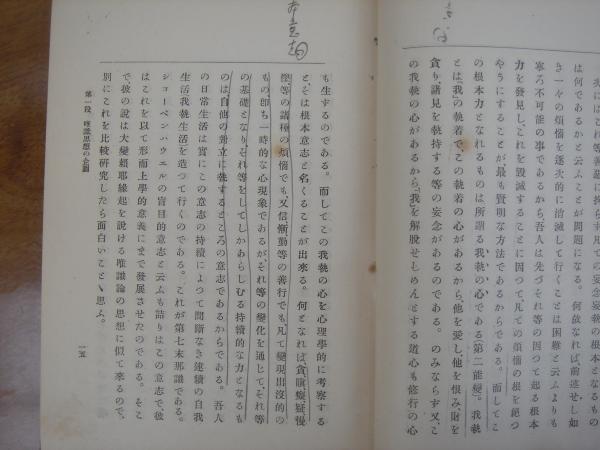 次にはこれ等善惡に拘らず凡ての妄念妄執の根本
は何であるかと云ふことが問題になる。何故なれば、前述せし如
き一々の煩惱を逐次的に治滅して行くことは困難と云ふよりも
寧ろ不可能の事であるから、吾人は先づそれ等の因つて起る根本
力を發見し、これを毀滅することに因つて凡ての煩惱の根を絕つ
やうにすることが、最も賢明な方法であるからである。而してこ
の根本力となれるものは所謂我執の心である(第二能變)。我執
とは「我」の執着で、この執着の心があるから、他を愛し他を恨み財を
貪り、諸見を執持する等の妄念があるのである。のみならず又、こ
の我執の心があるから、「我」を解脫せしめんとする道心も修行の心
も生するのである。而してこの我執の心を心理學的に考察する
と、そは根本意志と名くることが出來る。何となれば、貪瞋癡疑慢
等の諸種の煩惱でも、又信慚勤等の善行でも凡て變現出沒的の
もの、卽ち一時的な心現象であるが、それ等の變化を通じて、それ等
の基礎となり、それ等をしてしかあらしむる持續的な力となるも
のは、自他の對立に執するところの意志であるからである。吾人
の日常生活は實にこの意志の持續によつて間斷なき連續の自我
生活我執生活を造つて行くのである。これが第七末那識である。
シヨーペンハウエルの盲目的意志と云ふも詰りはこの意志で、彼
はこれを以て形而上學的意義にまで發展させたのである。そこ
で、彼の說は大變賴耶緣起を說ける唯識論の思想に似て來るので、
別にこれを比較硏究したら面白いことゝ思ふ。
第一段 唯識思想の企圖
一五